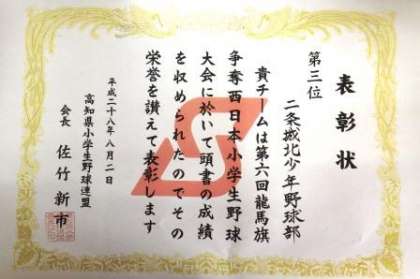 表彰状
第三位
二条城北少年野球部
貴チームは第六回龍馬旗
争奪西日本小学生野球
大会に於いて頭書の成績
を収められたのでその
栄誉を讃えて表彰します
平成二十八年八月二日
高知県小学生野球連盟
会長 佐竹新市